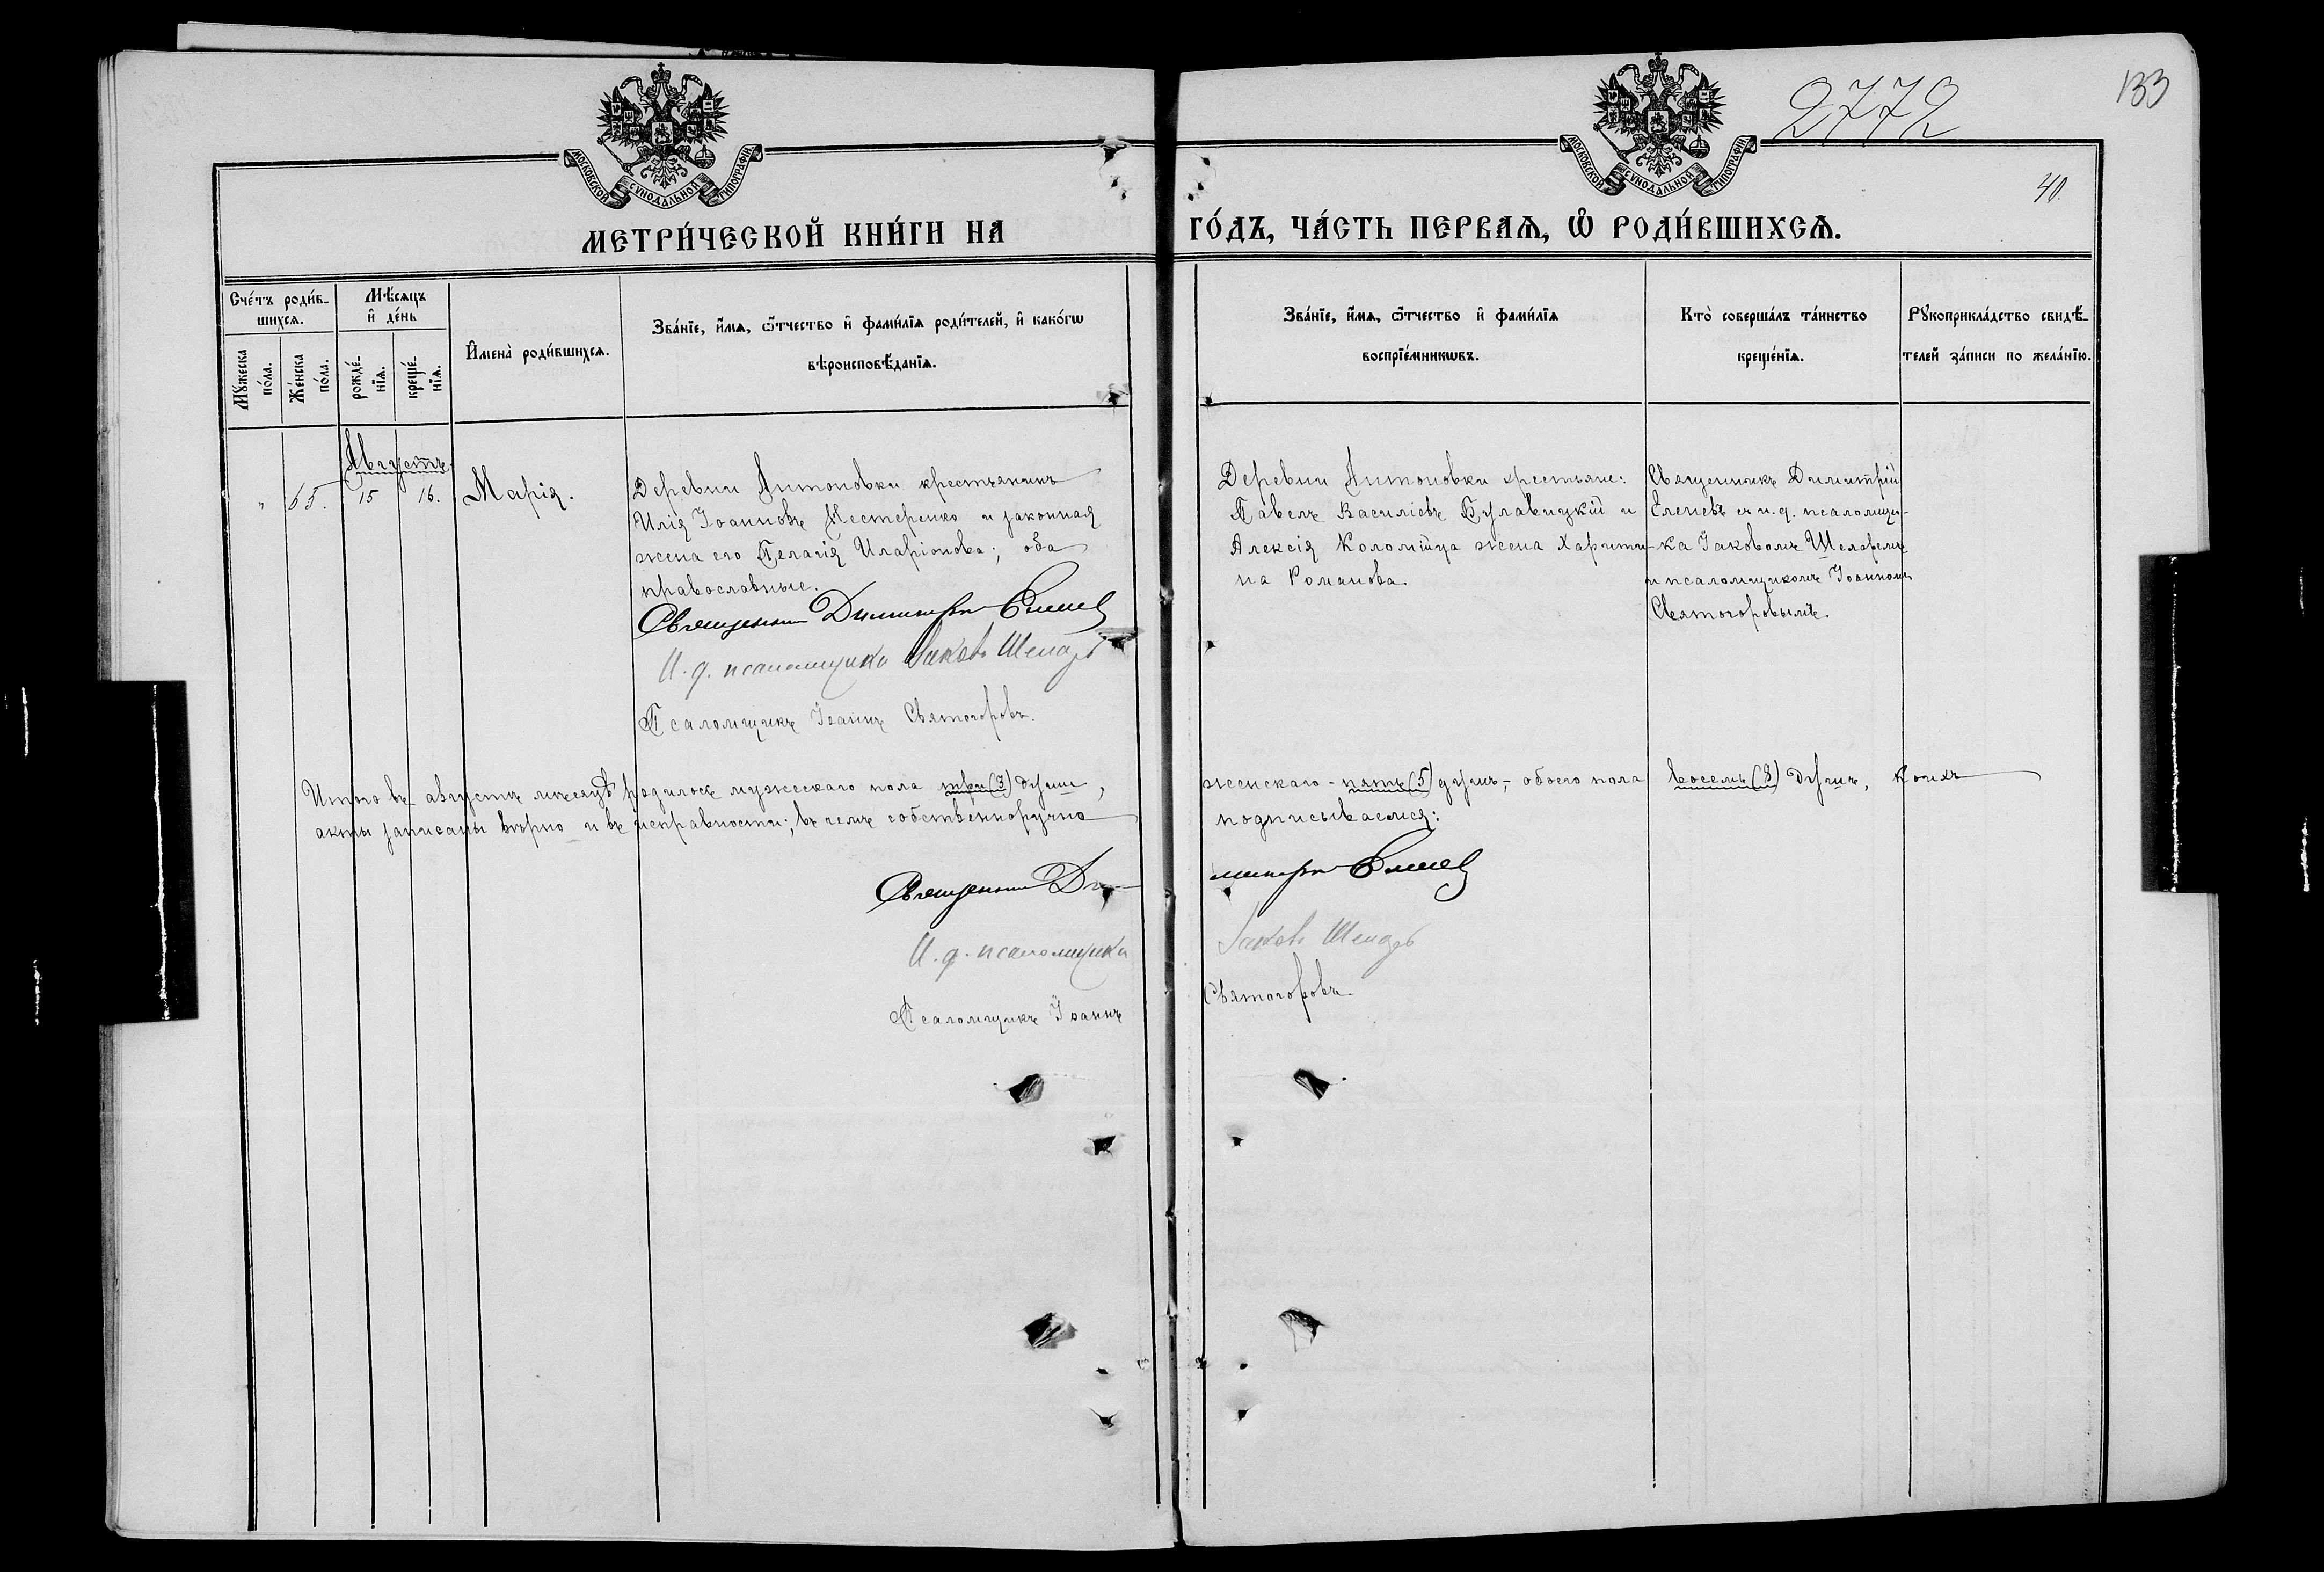 2772
133
40.
МОСКОВСКОЙ СѴНОДАЛЬНОЙ ТИПОГРАФІИ
МОСКОВСКОЙ СѴНОДАЛЬНОЙ ТИПОГРАФІИ
МЕТРИ́ЧЕСКОЙ КНИ́ГИ НА ГО́ДЪ, ЧА́СТЬ ПЕРВАѦ, Ѡ РОДИ́ВШИХСѦ.
Сче́тъ роди́в-
шихсѧ.
Мꙋжеска по́ла.
Же́нска по́ла.
Мѣ́сѧцъ
и҆ де́нь
рожде́-
нїѧ.
креще́-
нїѧ.
И҆мена̀ роди́вшихсѧ.
Зва́нїе, и҆́мѧ, ѻ҆́тчество и҆ фами́лїѧ роди́телей, и҆ како́гѡ
вѣроисповѣ́данїѧ.
Зва́нїе, и҆́мѧ, ѻ҆́тчество и҆ фами́лїѧ
воспрїе́мникѡвъ.
Кто̀ соверша́лъ та́инство
креще́нїѧ.
Рꙋкоприкла́дство свидѣ́-
телей за́писи по жела́нїю.
Августъ.
" 65. 15 16. Марія.
Деревни Антоновки крестьянинъ
Илія Іоанновъ Нестеренко и законная
жена его Пелагія Иларіонова; оба
православные.
Священник Димитрий Еленев
И. д. псаломщика Іаковъ
Псаломщикъ Іоаннъ Святогоровъ.
Деревни Антоновки крестьяне:
Павелъ Василіевъ Булавицкій и
Алексія Коломійца жена Харити-
на Романова.
Священникъ Димитрій
Еленевъ съ и. д. псаломщи-
ка Іаковомъ
и псаломщикомъ Іоанномъ
Святогоровымъ.
Итого въ августѣ мѣсяцѣ родилось мужескаго пола три (3) души, женскаго - пять (5) душъ, - обоего пола восемь (8) душъ, коихъ
акты записаны вѣрно и въ исправности; въ чемъ собственноручно подписываемся:
Священник Димитрий Еленев
И. д. псаломщика Іаковъ
Псаломщикъ Іоаннъ Святогоровъ.